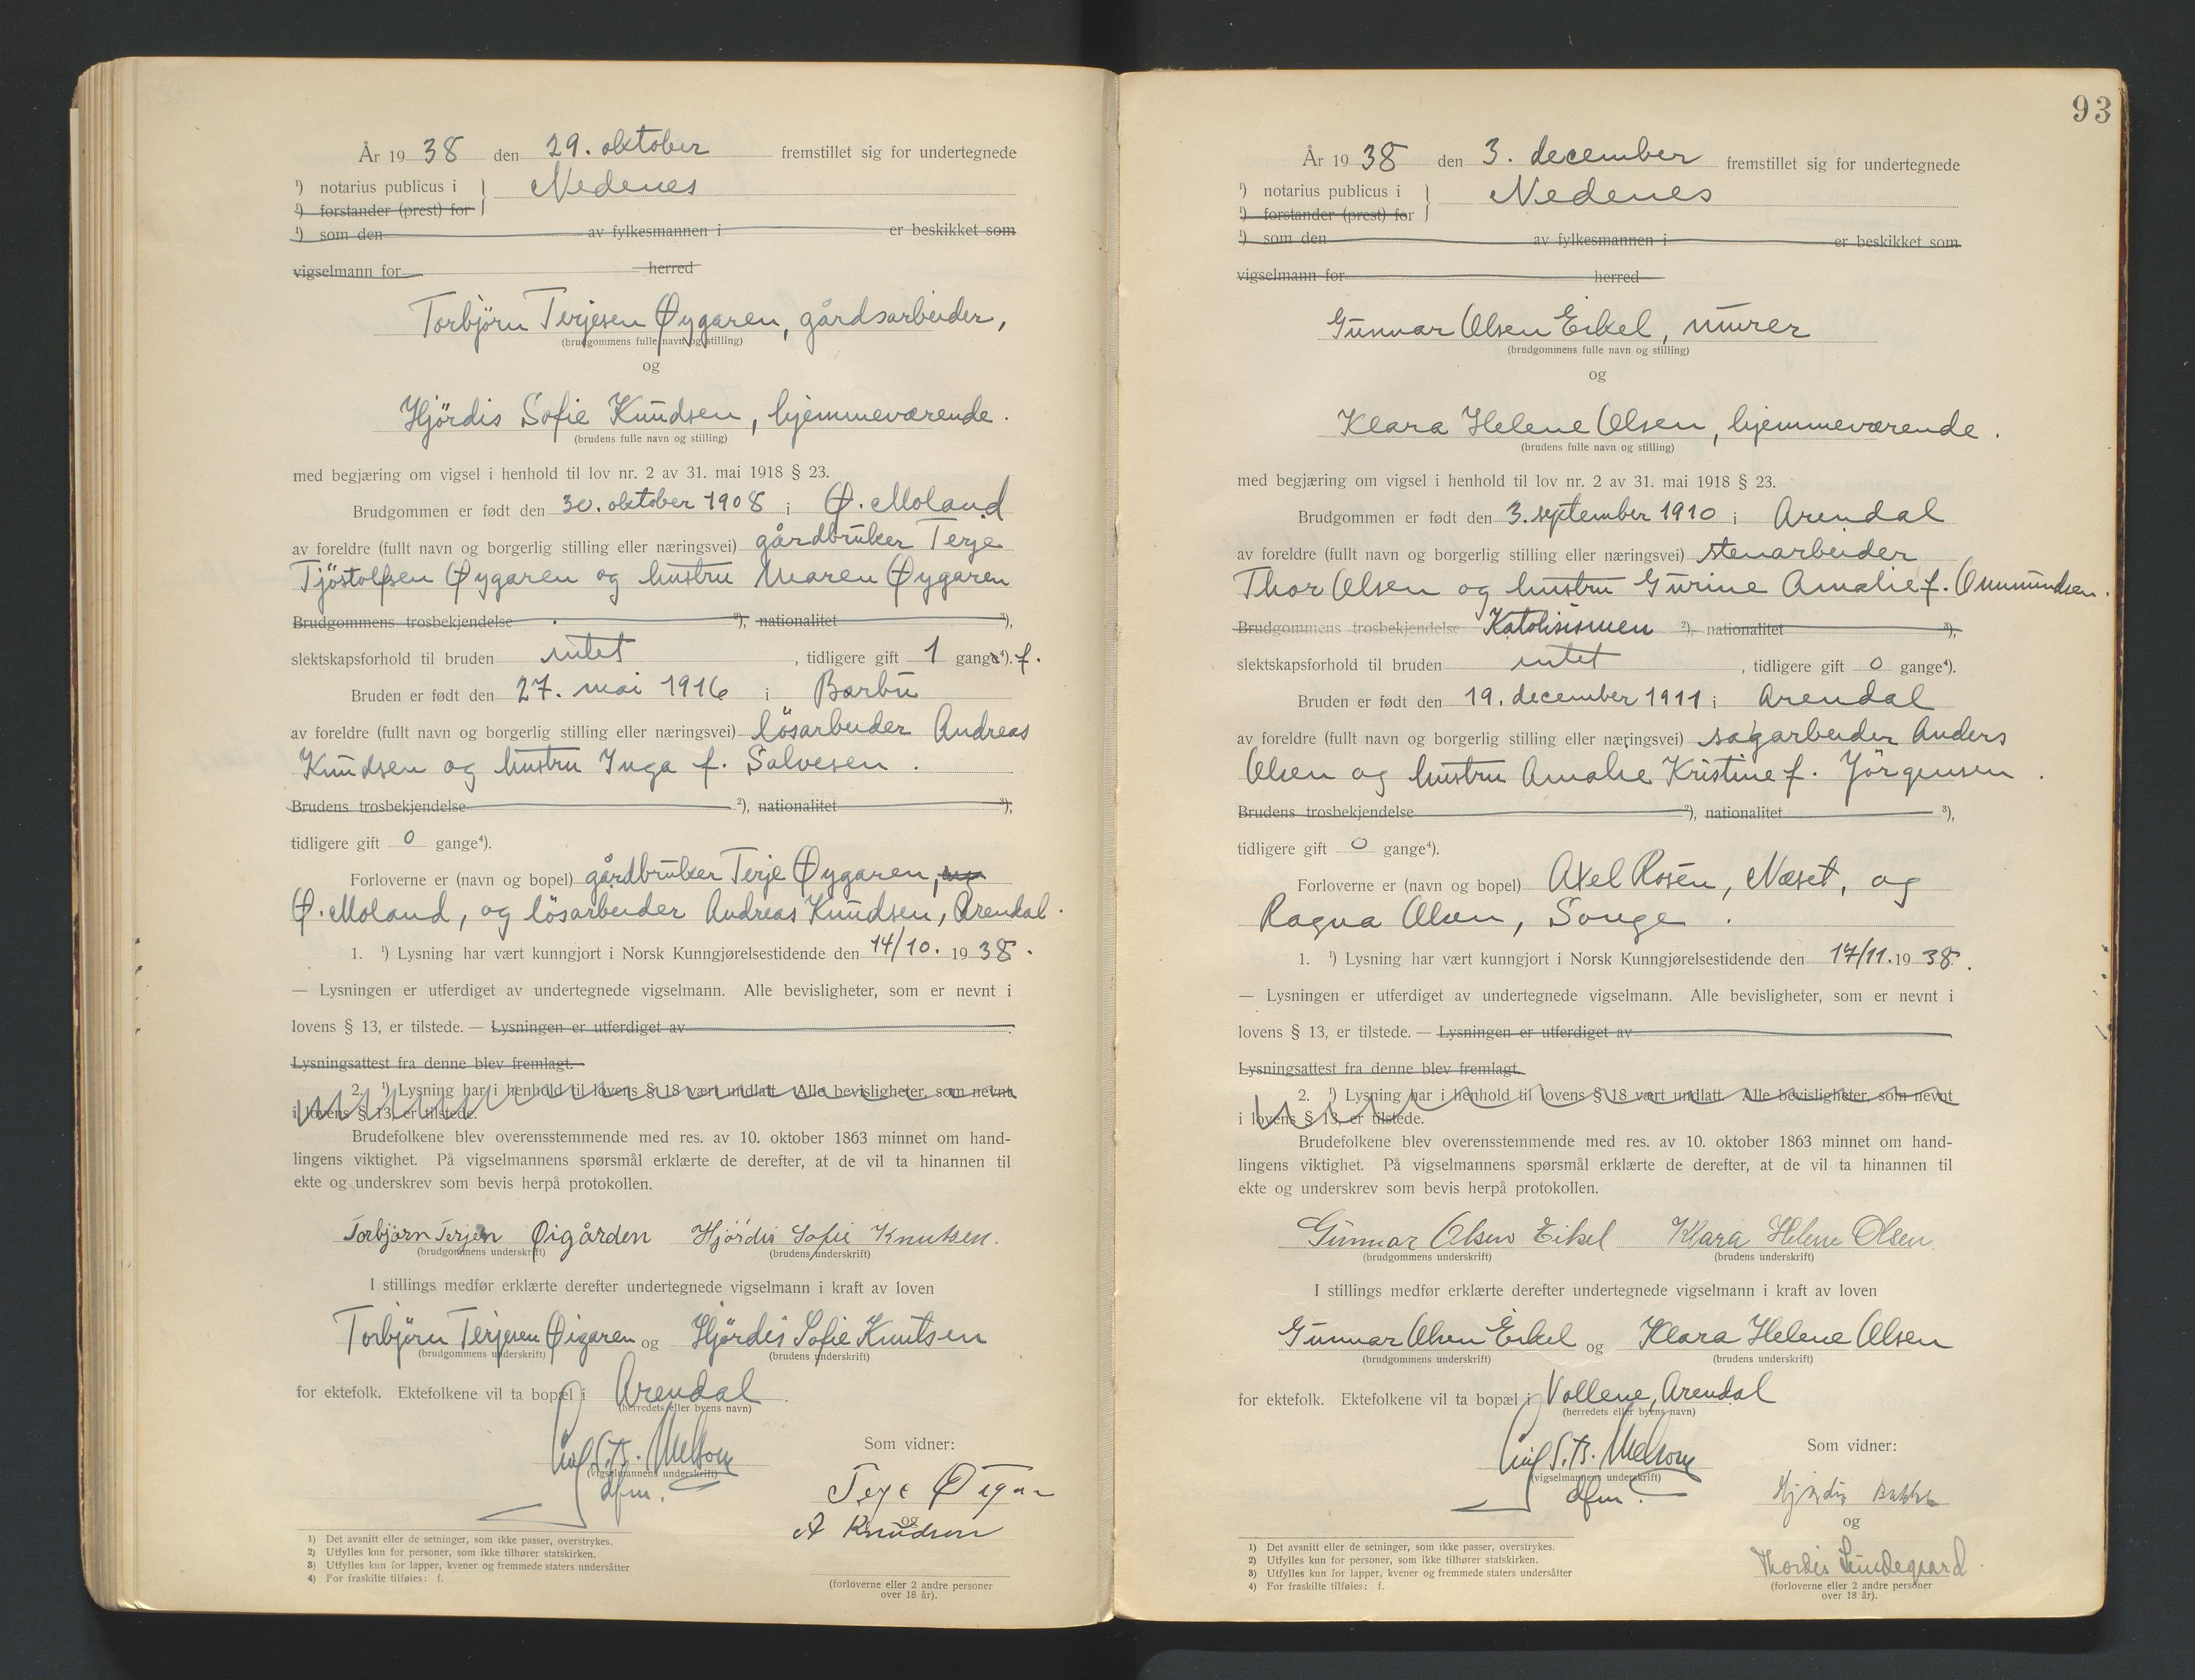 År 19 38 den 29. oktober fremstillet sig for undertegnede
¹) notarius publicus i } Nedenes
¹) forstander (prest) for
¹) som den av fylkesmannen i er beskikket som
vigselmann for herred
Torbjörn Terjesen Øygaren, gårdsarbeider,
(brudgommens fulle navn og stilling)
og
Hjördis Sofie Knudsen, hjemmeværende.
(brudens fulle navn og stilling)
med begjæring om vigsel i henhold til lov nr. 2 av 31. mai 1918 § 23.
Brudgommen er født den 30. oktober 1908 i Ø. Moland
av foreldre (fullt navn og borgerlig stilling eller næringsvei) gårdbruker Terje
Tjöstolfsen Øygaren og hustru Maren Øygaren
Brudgommens trosbekjendelse ²), nationalitet ³),
slektskapsforhold til bruden intet , tidligere gift 1 gang⁴). f.
Bruden er født den 27. mai 1916 i Barbu
av foreldre (fullt navn og borgerlig stilling eller næringsvei) lösarbeider Andreas
Knudsen og hustru Inga f. Salvesen.
Brudens trosbekjendelse ²), nationalitet ³),
tidligere gift 0 gange⁴).
Forloverne er (navn og bopel) gårdbruker Terje Øygaren,
Ø. Moland, og lösarbeider Andreas Knudsen, Arendal.
1. ¹) Lysning har vært kunngjort i Norsk Kunngjørelsestidende den 14/10. 19 38.
— Lysningen er utferdiget av undertegnede vigselmann. Alle bevisligheter, som er nevnt i
lovens § 13, er tilstede. — Lysningen er utferdiget av .
Lysningsattest fra denne blev fremlagt.
2. ¹) Lysning har i henhold til lovens § 18 vært undlatt Alle bevisligheter, som nevnt
i lovens § 13, er tilstede.
Brudefolkene blev overensstemmende med res. av 10. oktober 1863 minnet om hand-
lingens viktighet. På vigselmannens spørsmål erklærte de derefter, at de vil ta hinannen til
ekte og underskrev som bevis herpå protokollen.
Torbjörn Terjen Øigården Hjördis Sofie Knutsen.
(brudgommens underskrift) (brudens underskrift)
I stillings medfør erklærte derefter undertegnede vigselmann i kraft av loven
Torbjörn Terjesen Øigaren og Hjördis Sofie Knutsen
(brudgommens underskrift) (brudens underskrift)
for ektefolk. Ektefolkene vil ta bopæl i Arendal.
(herredets eller byens navn)
Som vidner:
(vigselmannens underskrift)
dfm.
Terje Øigar
og
A Knudsen
(forloverne eller 2 andre personer
over 18 år).
1) Det avsnitt eller de setninger, som ikke passer, overstrykes.
2) Utfylles kun for personer, som ikke tilhører statskirken.
3) Utfylles kun for lapper, kvener og fremmede staters undersåtter
4) For fraskilte tilføies: f.
93
År 19 38 den 3. december fremstillet sig for undertegnede
¹) notarius publicus i } Nedenes
¹) forstander (prest) for
¹) som den av fylkesmannen i er beskikket som
vigselmann for herred
Gunnar Olsen Eikel, murer
(brudgommens fulle navn og stilling)
og
Klara Helene Olsen, hjemmeværende.
(brudens fulle navn og stilling)
med begjæring om vigsel i henhold til lov nr. 2 av 31. mai 1918 § 23.
Brudgommen er født den 3. september 1910 i Arendal
av foreldre (fullt navn og borgerlig stilling eller næringsvei) stenarbeider
Thor Olsen og hustru Gurine Amalie f. Ommundsen.
Brudgommens trosbekjendelse Katolisismen ²), nationalitet ³),
slektskapsforhold til bruden intet , tidligere gift 0 gange⁴).
Bruden er født den 19. december 1911 i Arendal
av foreldre (fullt navn og borgerlig stilling eller næringsvei) sagarbeider Anders
Olsen og hustru Amalie Kristine f. Jörgensen.
Brudens trosbekjendelse ²), nationalitet ³),
tidligere gift 0 gange⁴).
Forloverne er (navn og bopel) Axel Rosén, Næset, og
Ragna Olsen, Songe.
1. ¹) Lysning har vært kunngjort i Norsk Kunngjørelsestidende den 17/11. 19 38.
— Lysningen er utferdiget av undertegnede vigselmann. Alle bevisligheter, som er nevnt i
lovens § 13, er tilstede. — Lysningen er utferdiget av
Lysningsattest fra denne blev fremlagt.
2. ¹) Lysning har i henhold til lovens § 18 vært undlatt Alle bevisligheter, som nevnt
i lovens § 13, er tilstede.
Brudefolkene blev overensstemmende med res. av 10. oktober 1863 minnet om hand-
lingens viktighet. På vigselmannens spørsmål erklærte de derefter, at de vil ta hinannen til
ekte og underskrev som bevis herpå protokollen.
Gunnar Olsen Eikel Klara Helene Olsen
(brudgommens underskrift) (brudens underskrift)
I stillings medfør erklærte derefter undertegnede vigselmann i kraft av loven
Gunnar Olsen Eikel og Klara Helene Olsen
(brudgommens underskrift) (brudens underskrift)
for ektefolk. Ektefolkene vil ta bopæl i Vollene, Arendal
(herredets eller byens navn)
Som vidner:
(vigselmannens underskrift)
dfm.
Hjördis
og
Thordis Lindegaard
(forloverne eller 2 andre personer
over 18 år).
1) Det avsnitt eller de setninger, som ikke passer, overstrykes.
2) Utfylles kun for personer, som ikke tilhører statskirken.
3) Utfylles kun for lapper, kvener og fremmede staters undersåtter
4) For fraskilte tilføies: f.